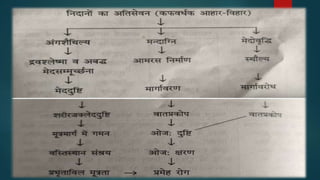 निदानों का अतिसेवन (कफवर्धक आहार-विहार)
अंगशैथिल्य मन्दाग्नि मेदोवृद्धि
द्रवश्लेष्मा व अबद्ध आमरस निर्माण स्थौल्य
मेदसम्मूर्च्छना
मेददुष्टि मार्गावरण मार्गाविरोध
शरीरजक्लेददुष्टि वातप्रकोप वातप्रकोप
मूत्रमार्ग में गमन ओज: दुष्टि
वस्तिस्थान संश्रय ओज: क्षरण
प्रभूताविल मूत्रता → प्रमेह रोग